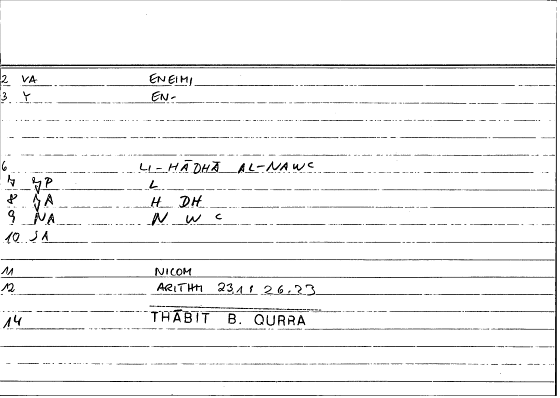 2 VA ENEIMI
3 Y EN-
6 LI-HĀDHĀ AL-NAWC
7 L
8 H DH
9 NA N W C
10
11 NICOM
12 ARITHM 26.23
14 THĀBIT B. QURRA